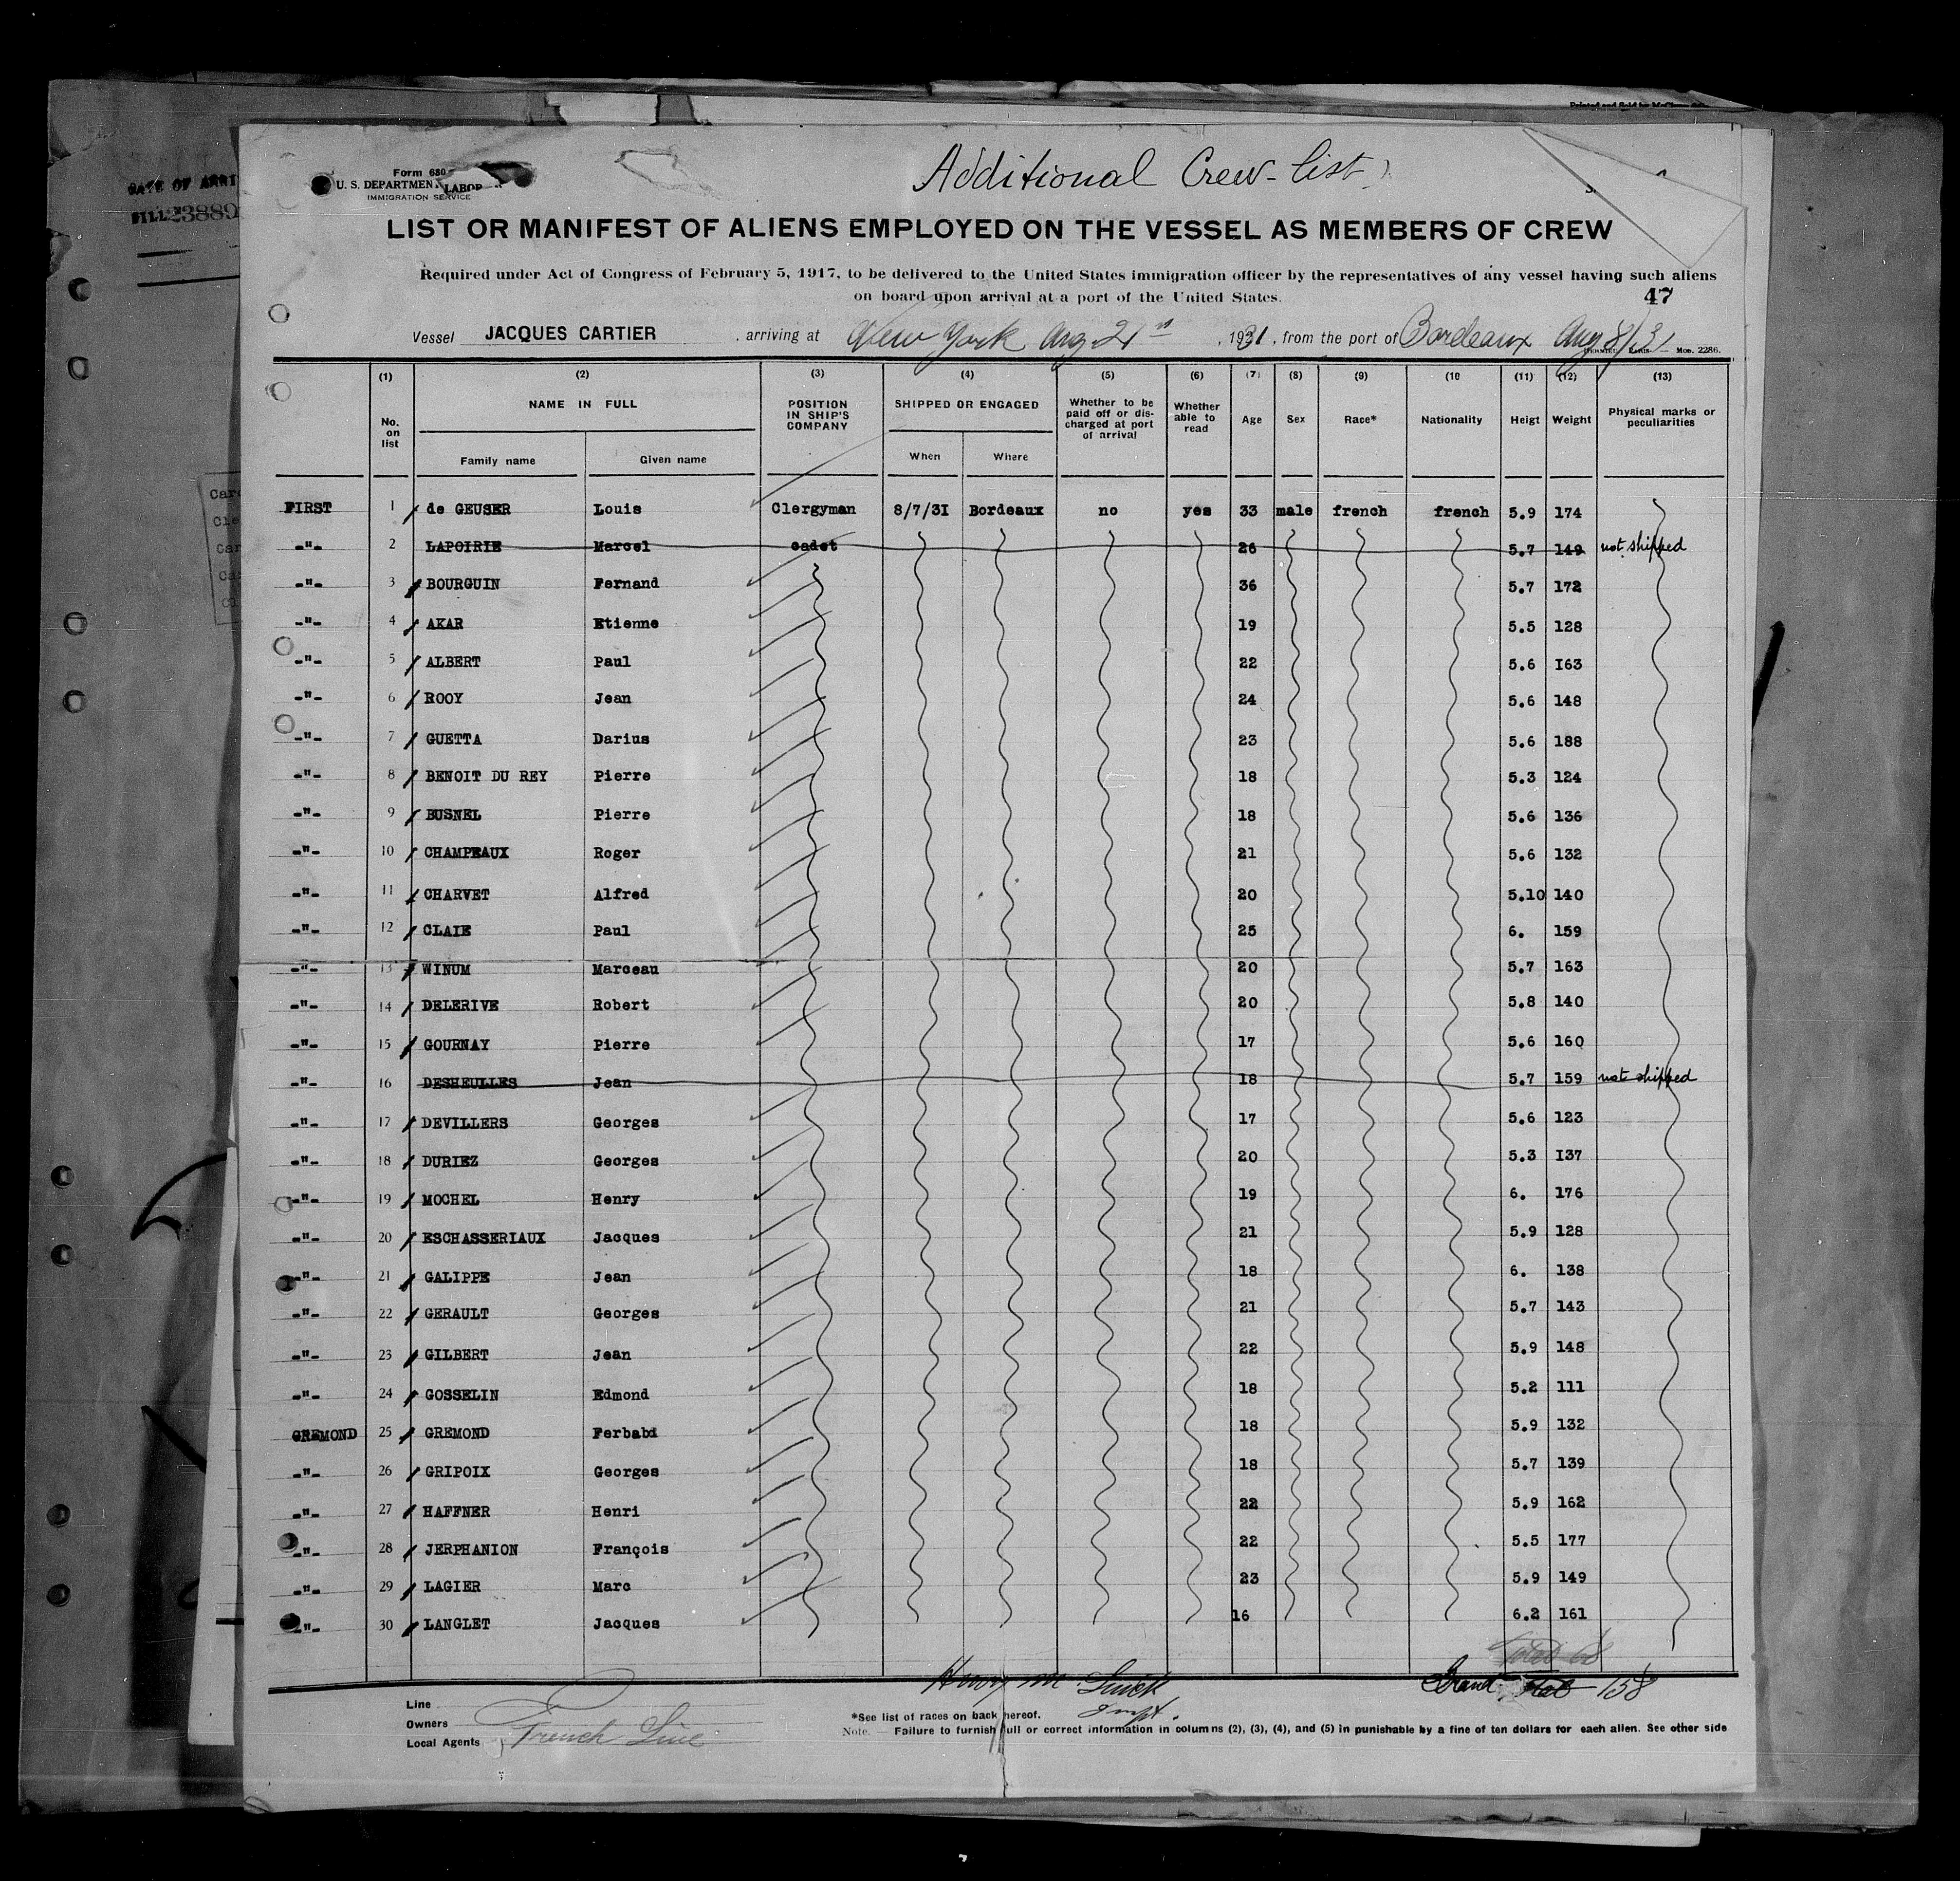 Printed and Sold by
DATE OF ARRI
23889
Additional Crew-list
Form 680
U. S. DEPARTMENT LABOR
IMMIGRATION SERVICE
LIST OR MANIFEST OF ALIENS EMPLOYED ON THE VESSEL AS MEMBERS OF CREW
Required under Act of Congress of February 5, 1917, to be delivered to the United States immigration officer by the representatives of any vessel having such aliens
on board upon arrival at a port of the United States.
47
Vessel JACQUES CARTIER , arriving at New York Aug. 21st , 1931 , from the port of Bordeaux Aug 8/31
PARIS — Mod. 2286.
(1) (2) (3) (4) (5) (6) (7) (8) (9) (10 (11) (12) (13)
No. on list NAME IN FULL POSITION IN SHIP'S COMPANY SHIPPED OR ENGAGED Whether to be paid off or discharged at port of arrival Whether able to read Age Sex Race* Nationality Heigt Weight Physical marks or peculiarities
Family name Given name When Where
FIRST 1 de GEUSER Louis Clergyman 8/7/3I Bordeaux no yes 33 male french french 5.9 174
-"- 2 LAPOIRIE Marcel cadet 26 5.7 149 not shipped
-"- 3 BOURGUIN Fernand 36 5.7 172
-"- 4 AKAR Etienne 19 5.5 128
-"- 5 ALBERT Paul 22 5.6 I63
-"- 6 ROOY Jean 24 5.6 148
-"- 7 GUETTA Darius 23 5.6 188
-"- 8 BENOIT DU REY Pierre 18 5.3 124
-"- 9 BUSNEL Pierre 18 5.6 136
-"- 10 CHAMPEAUX Roger 21 5.6 132
-"- 11 CHARVET Alfred 20 5.10 140
-"- 12 CLAIE Paul 25 6. 159
-"- 13 WINUM Marceau 20 5.7 163
-"- 14 DELERIVE Robert 20 5.8 140
-"- 15 GOURNAY Pierre 17 5.6 160
-"- 16 DESHEULLES Jean 18 5.7 159 not shipped
-"- 17 DEVILLERS Georges 17 5.6 123
-"- 18 DURIEZ Georges 20 5.3 I37
-"- 19 MOCHEL Henry 19 6. 176
-"- 20 ESCHASSERIAUX Jacques 21 5.9 128
-"- 21 GALIPPE Jean 18 6. 138
-"- 22 GERAULT Georges 21 5.7 143
-"- 23 GILBERT Jean 22 5.9 148
-"- 24 GOSSELIN Edmond 18 5.2 111
GREMOND 25 GREMOND Ferbabd 18 5.9 132
-"- 26 GRIPOIX Georges 18 5.7 139
-"- 27 HAFFNER Henri 22 5.9 162
-"- 28 JERPHANION François 22 5.5 177
-"- 29 LAGIER Marc 23 5.9 149
-"- 30 LANGLET Jacques 16 6.2 161
Total 68
Grand 158
Line
Owners
Local Agents French Line
*See list of races on back hereof.
Note. — Failure to furnish full or correct information in columns (2), (3), (4), and (5) in punishable by a fine of ten dollars for each alien. See other side